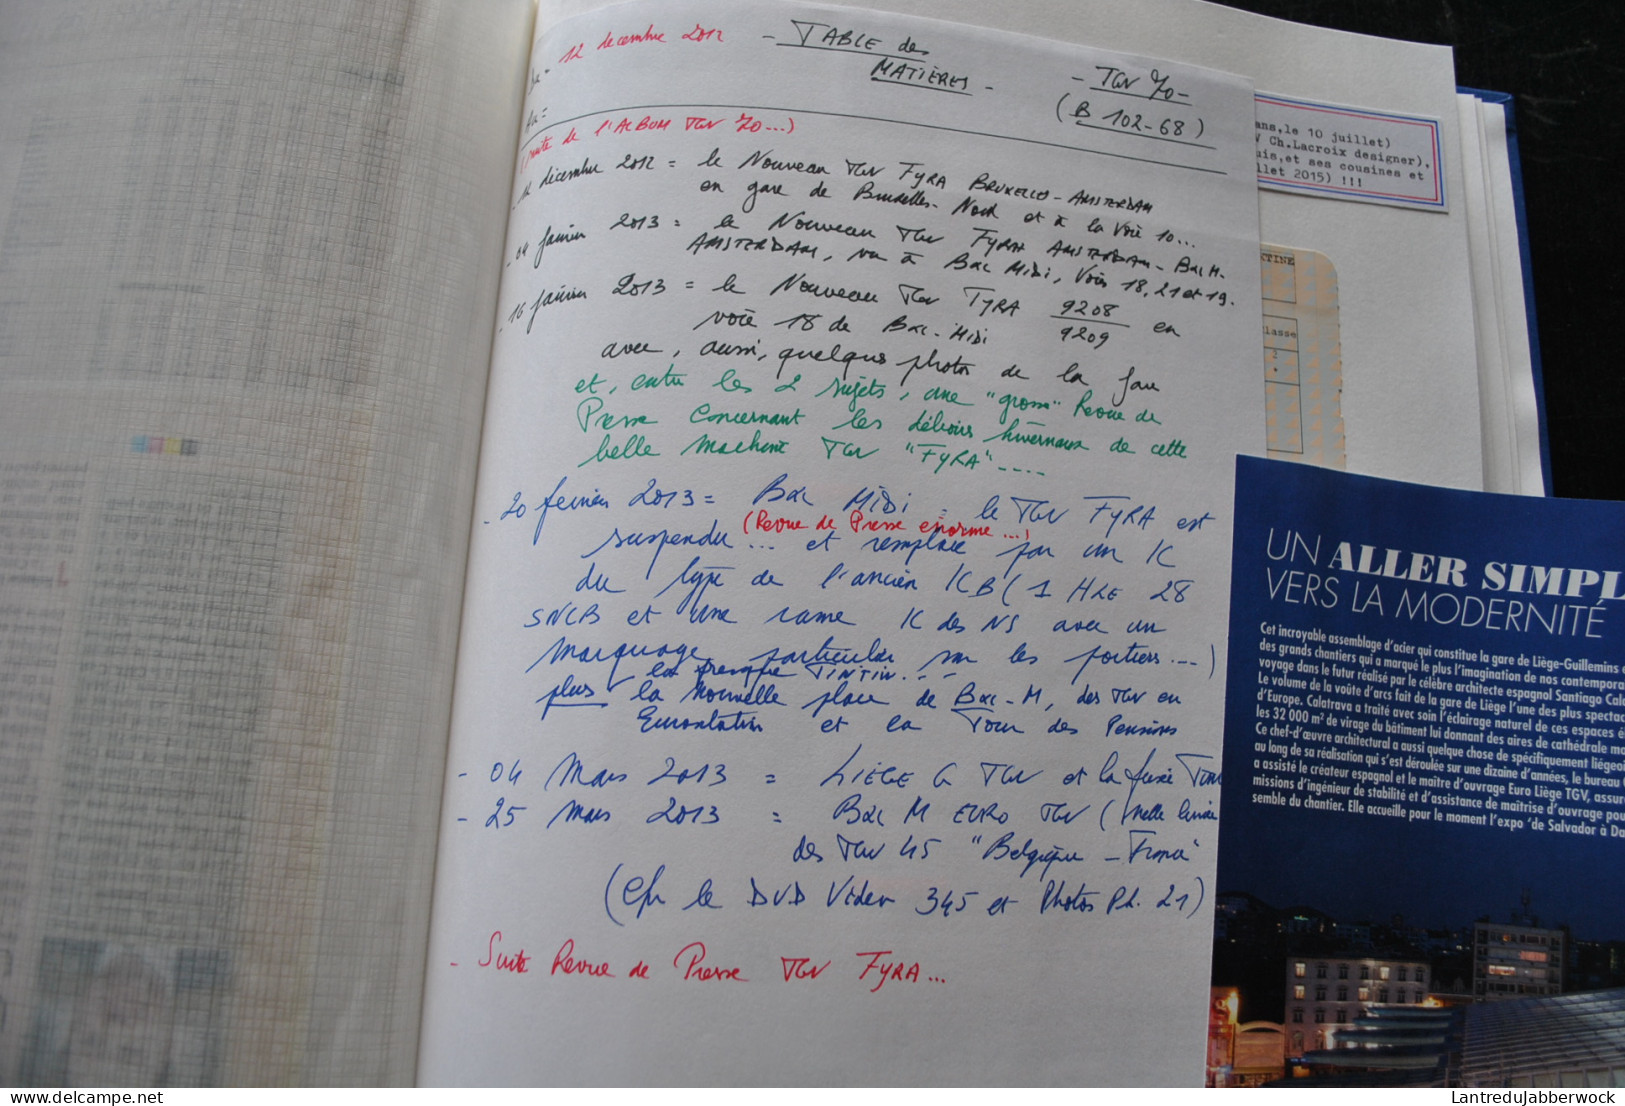 Du = 12 decembre 2012
- TABLE des
MATIÈRES -
- TGV 70 -
(B 102-68)
Au =
(suite de l'ALBUM TGV 70...)
- 12 décembre 2012 = le Nouveau TGV FYRA BRUXELLES-AMSTERDAM
en gare de Bruxelles-Nord et à la voie 10...
- 04 Janvier 2013 = le Nouveau TGV FYRA AMSTERDAM-BXL M-
AMSTERDAM, vu à BXL MIDI, Voies 18, 21 et 19.
- 16 Janvier 2013 = le Nouveau TGV FYRA 9208
9209 en
voie 18 de BXL-MIDI
avec, aussi, quelques photos de la
et, entre les 2 sujets, une "grosse" Revue de
Presse concernant les déboires hivernaux de cette
belle machine TGV "FYRA"....
- 20 fevrier 2013 = BXL MIDI = le TGV FYRA est
(Revue de Presse enorme...)
suspendu... et remplacé par un IC
du type de l'ancien ICB (1 HLE 28
SNCB et une rame IC des NS avec un
marquage particulier sur les portières...)
TINTIN...
plus la nouvelle place de BXL-M, des TGV en
et la Tour des Pensions
- 04 Mars 2013 = LIÈGE G TGV et la fusée
- 25 Mars 2013 = BXL M EURO TGV (
des TGV
(cfr le DVD Video 345 et Photos Ph. 21)
- Suite Revue de Presse TGV FYRA...
ans, le 10 juillet)
Ch.Lacroix designer),
uis, et ses cousines et
llet 2015) !!!
CTINE
lasse
2
UN ALLER SIMPL
VERS LA MODERNITÉ
Cet incroyable assemblage d'acier qui constitue la gare de Liège-Guillemins e
des grands chantiers qui a marqué le plus l'imagination de nos contempora
voyage dans le futur réalisé par le célèbre architecte espagnol Santiago Cala
Le volume de la voûte d'arcs fait de la gare de Liège l'une des plus spectac
d'Europe. Calatrava a traité avec soin l'éclairage naturel de ces espaces é
les 32 000 m² de vitrage du bâtiment lui donnant des aires de cathédrale mo
Ce chef-d'œuvre architectural a aussi quelque chose de spécifiquement liégeoi
au long de sa réalisation qui s'est déroulée sur une dizaine d'années, le bureau
a assisté le créateur espagnol et le maître d'ouvrage Euro Liège TGV, assur
missions d'ingénieur de stabilité et d'assistance de maîtrise d'ouvrage pou
semble du chantier. Elle accueille pour le moment l'expo 'de Salvador à Da
LantreduJabberwock